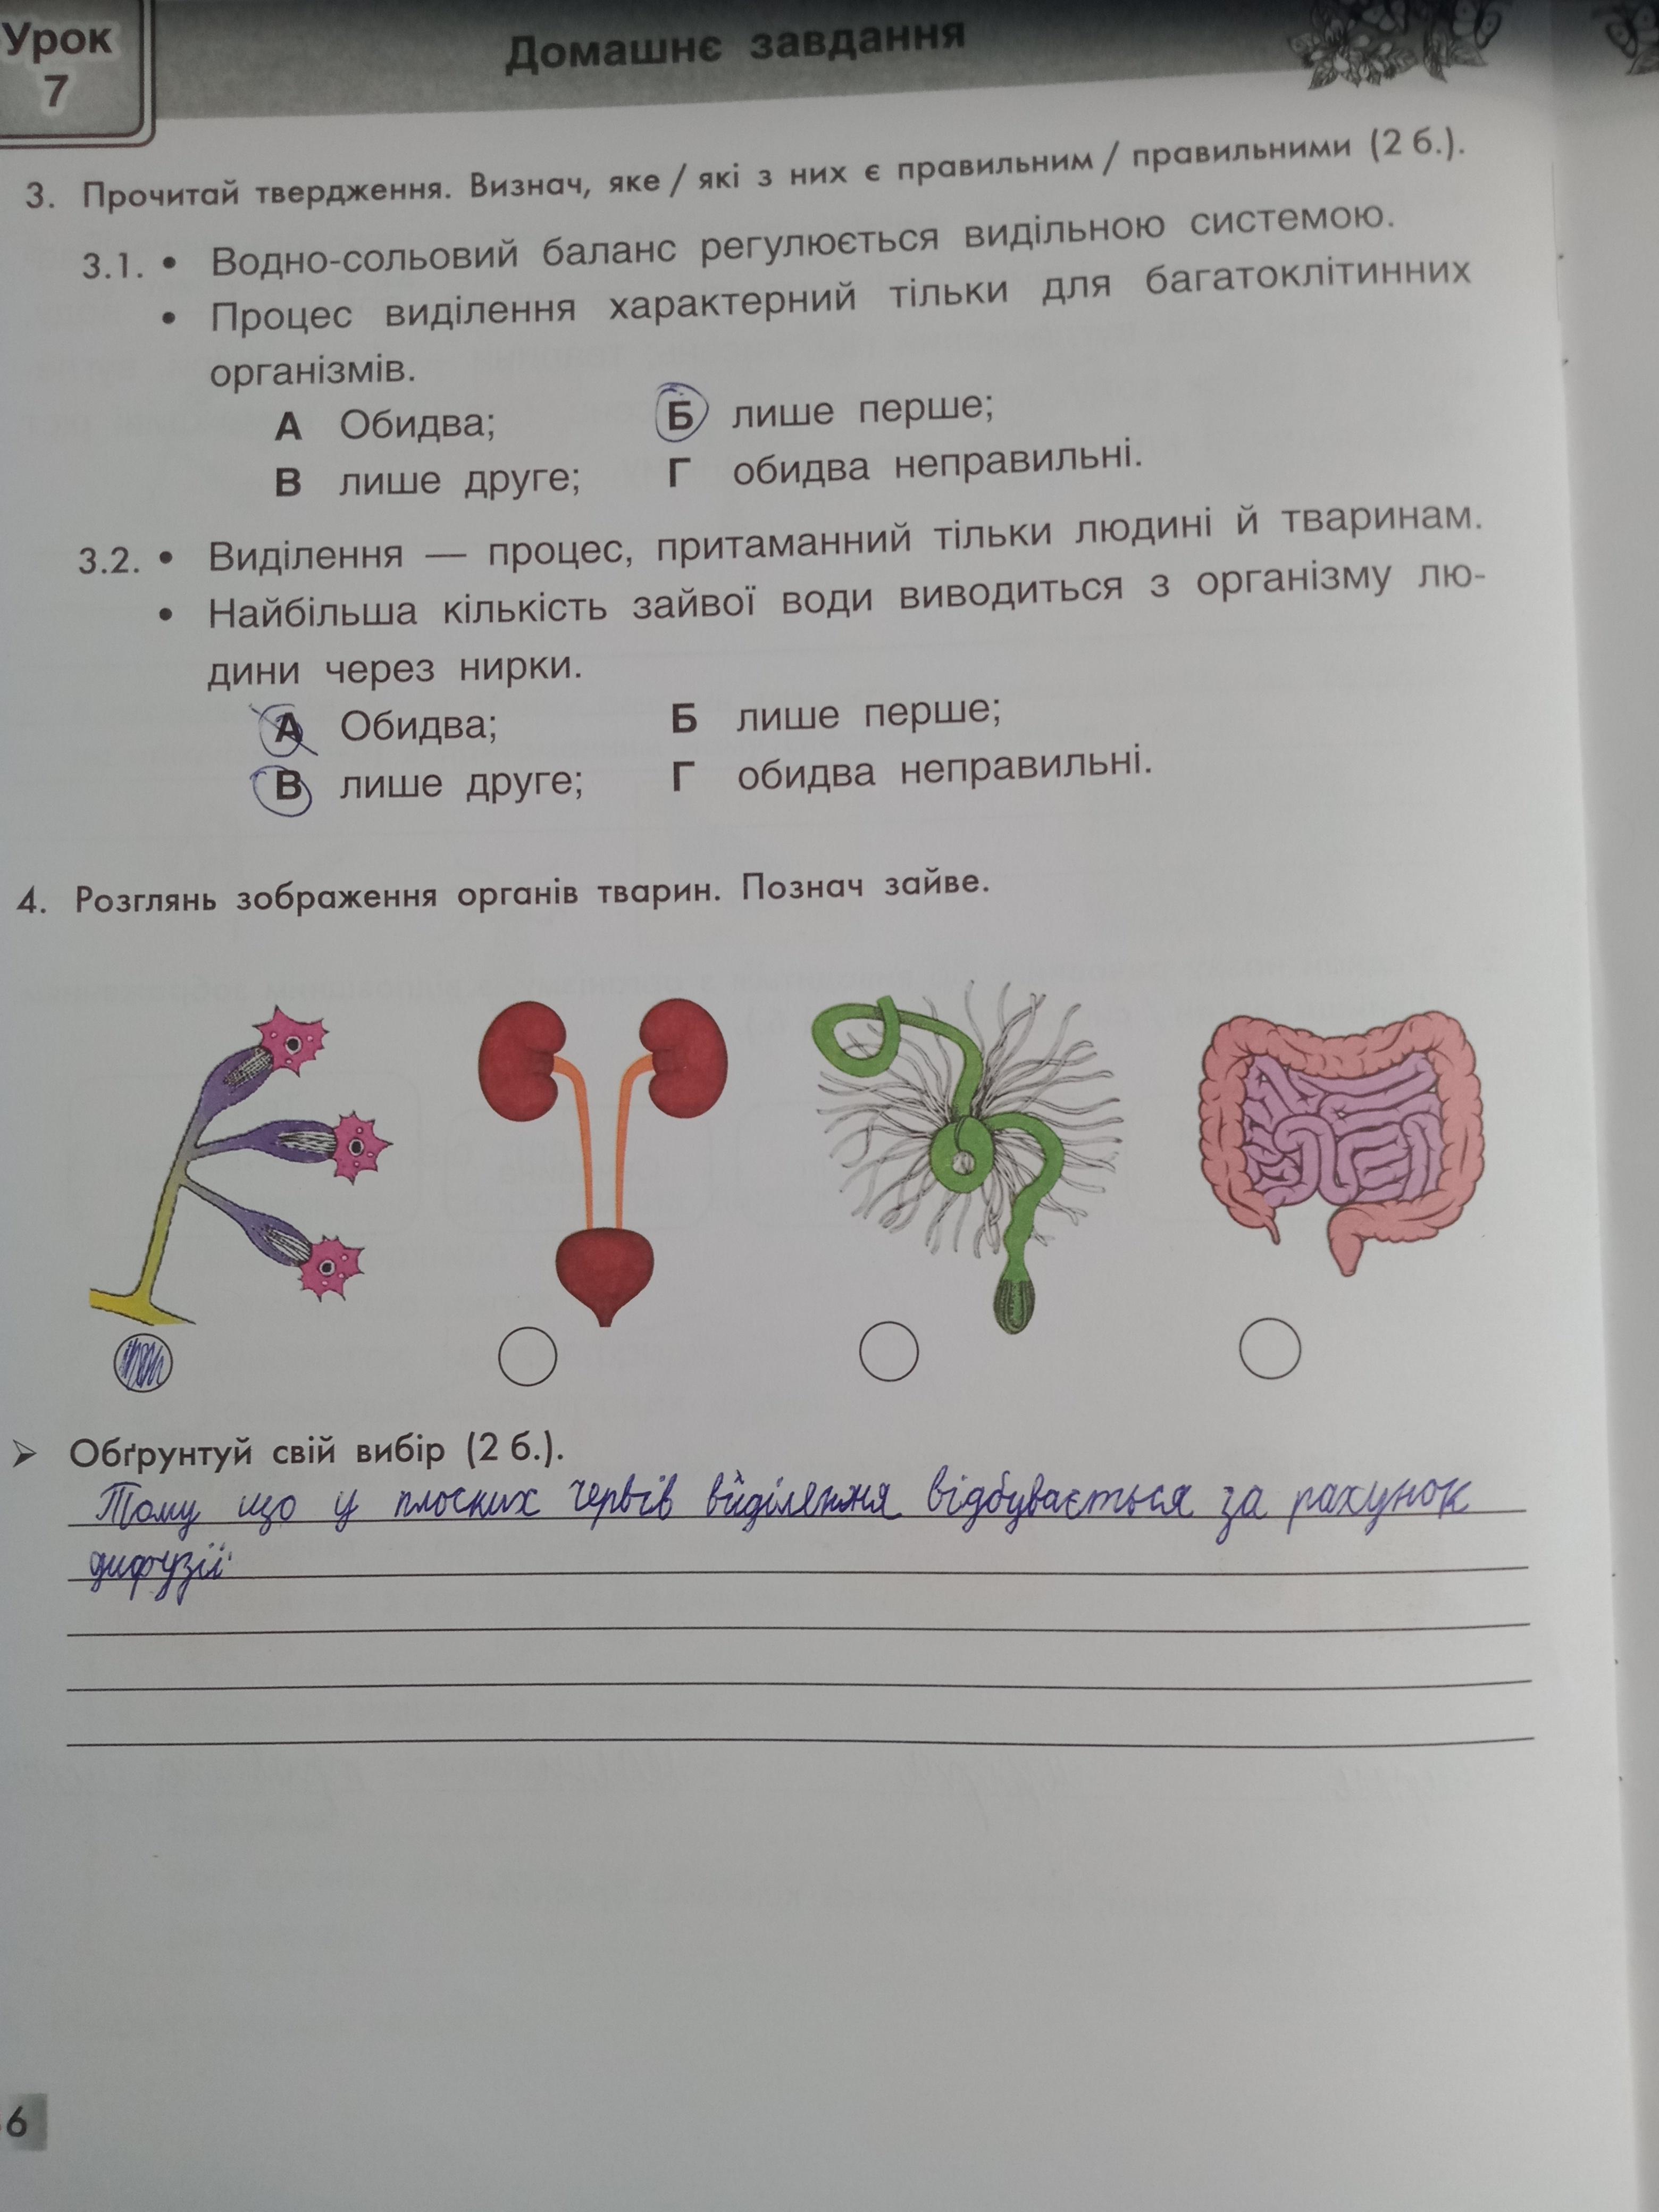 Урок
7
Домашнє завдання
3. Прочитай твердження. Визнач, яке / які з них є правильним / правильними (2 б.).
3.1. • Водно-сольовий баланс регулюється видільною системою.
• Процес виділення характерний тільки для багатоклітинних
організмів.
А Обидва; Б лише перше;
В лише друге; Г обидва неправильні.
3.2. • Виділення — процес, притаманний тільки людині й тваринам.
• Найбільша кількість зайвої води виводиться з організму лю-
дини через нирки.
А Обидва; Б лише перше;
В лише друге; Г обидва неправильні.
4. Розглянь зображення органів тварин. Познач зайве.
➢ Обґрунтуй свій вибір (2 б.).
Тому що у плоских червів виділення відбувається за рахунок
дифузії
6